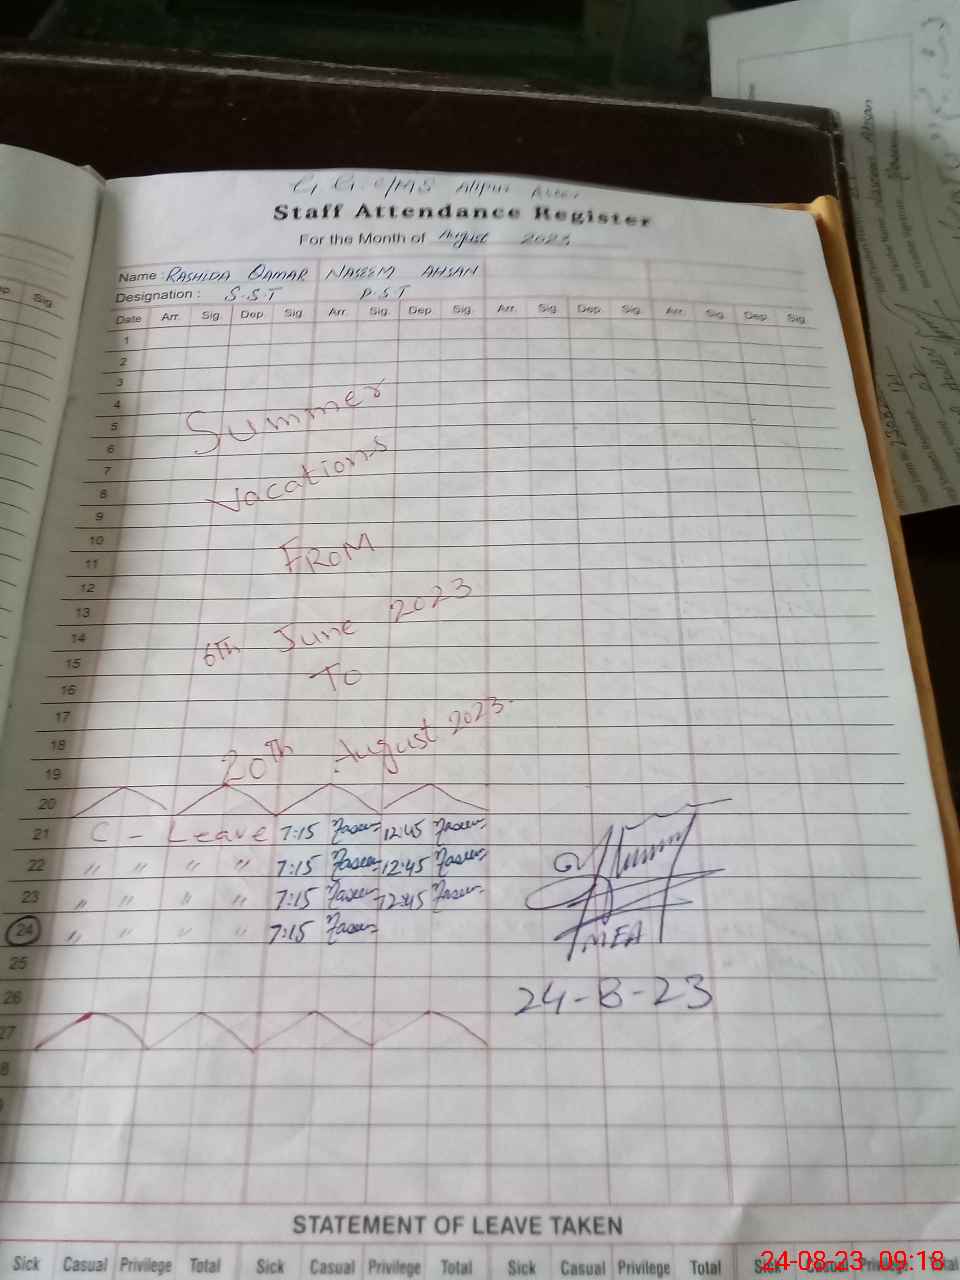 Staff Attendance Register
For the Month of August 2023
Name : RASHIDA QAMAR NASEEM AHSAN
Designation : S.S.T P.S.T
Date Arr. Sig. Dep. Sig. Arr. Sig. Dep. Sig. Arr. Sig. Dep. Sig. Arr. Sig. Dep. Sig.
1
2
3
4
Summer
5
6
7
Vacations
8
9
10
FROM
11
12
13
14
6th June 2023
15
TO
16
17
18
20th August 2023.
19
20
21 C - Leave 7:15 12:45
22 〃 〃 〃 〃 7:15 12:45
23 〃 〃 〃 〃 7:15 12:45
24 〃 〃 〃 〃 7:15
MEA
25
26
24-8-23
27
8
STATEMENT OF LEAVE TAKEN
Sick Casual Privilege Total Sick Casual Privilege Total Sick Casual Privilege Total Sick Casual Privilege
24-08-23 09:18